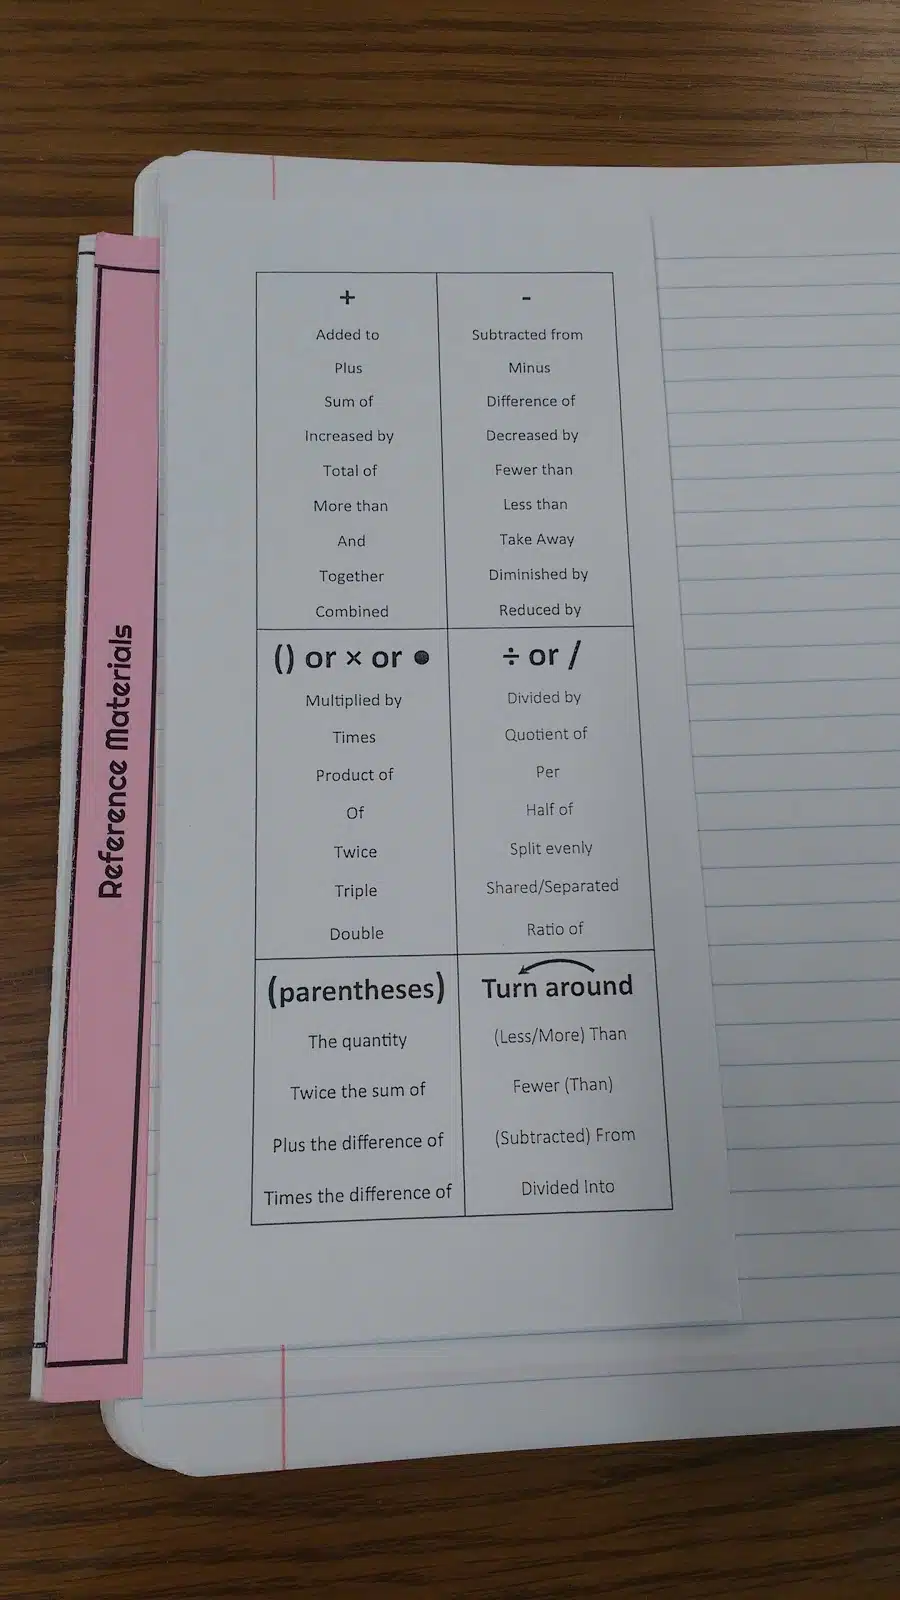 Reference Materials
+
Added to
Plus
Sum of
Increased by
Total of
More than
And
Together
Combined
-
Subtracted from
Minus
Difference of
Decreased by
Fewer than
Less than
Take Away
Diminished by
Reduced by
() or × or ●
Multiplied by
Times
Product of
Of
Twice
Triple
Double
÷ or /
Divided by
Quotient of
Per
Half of
Split evenly
Shared/Separated
Ratio of
(parentheses)
The quantity
Twice the sum of
Plus the difference of
Times the difference of
Turn around
(Less/More) Than
Fewer (Than)
(Subtracted) From
Divided Into